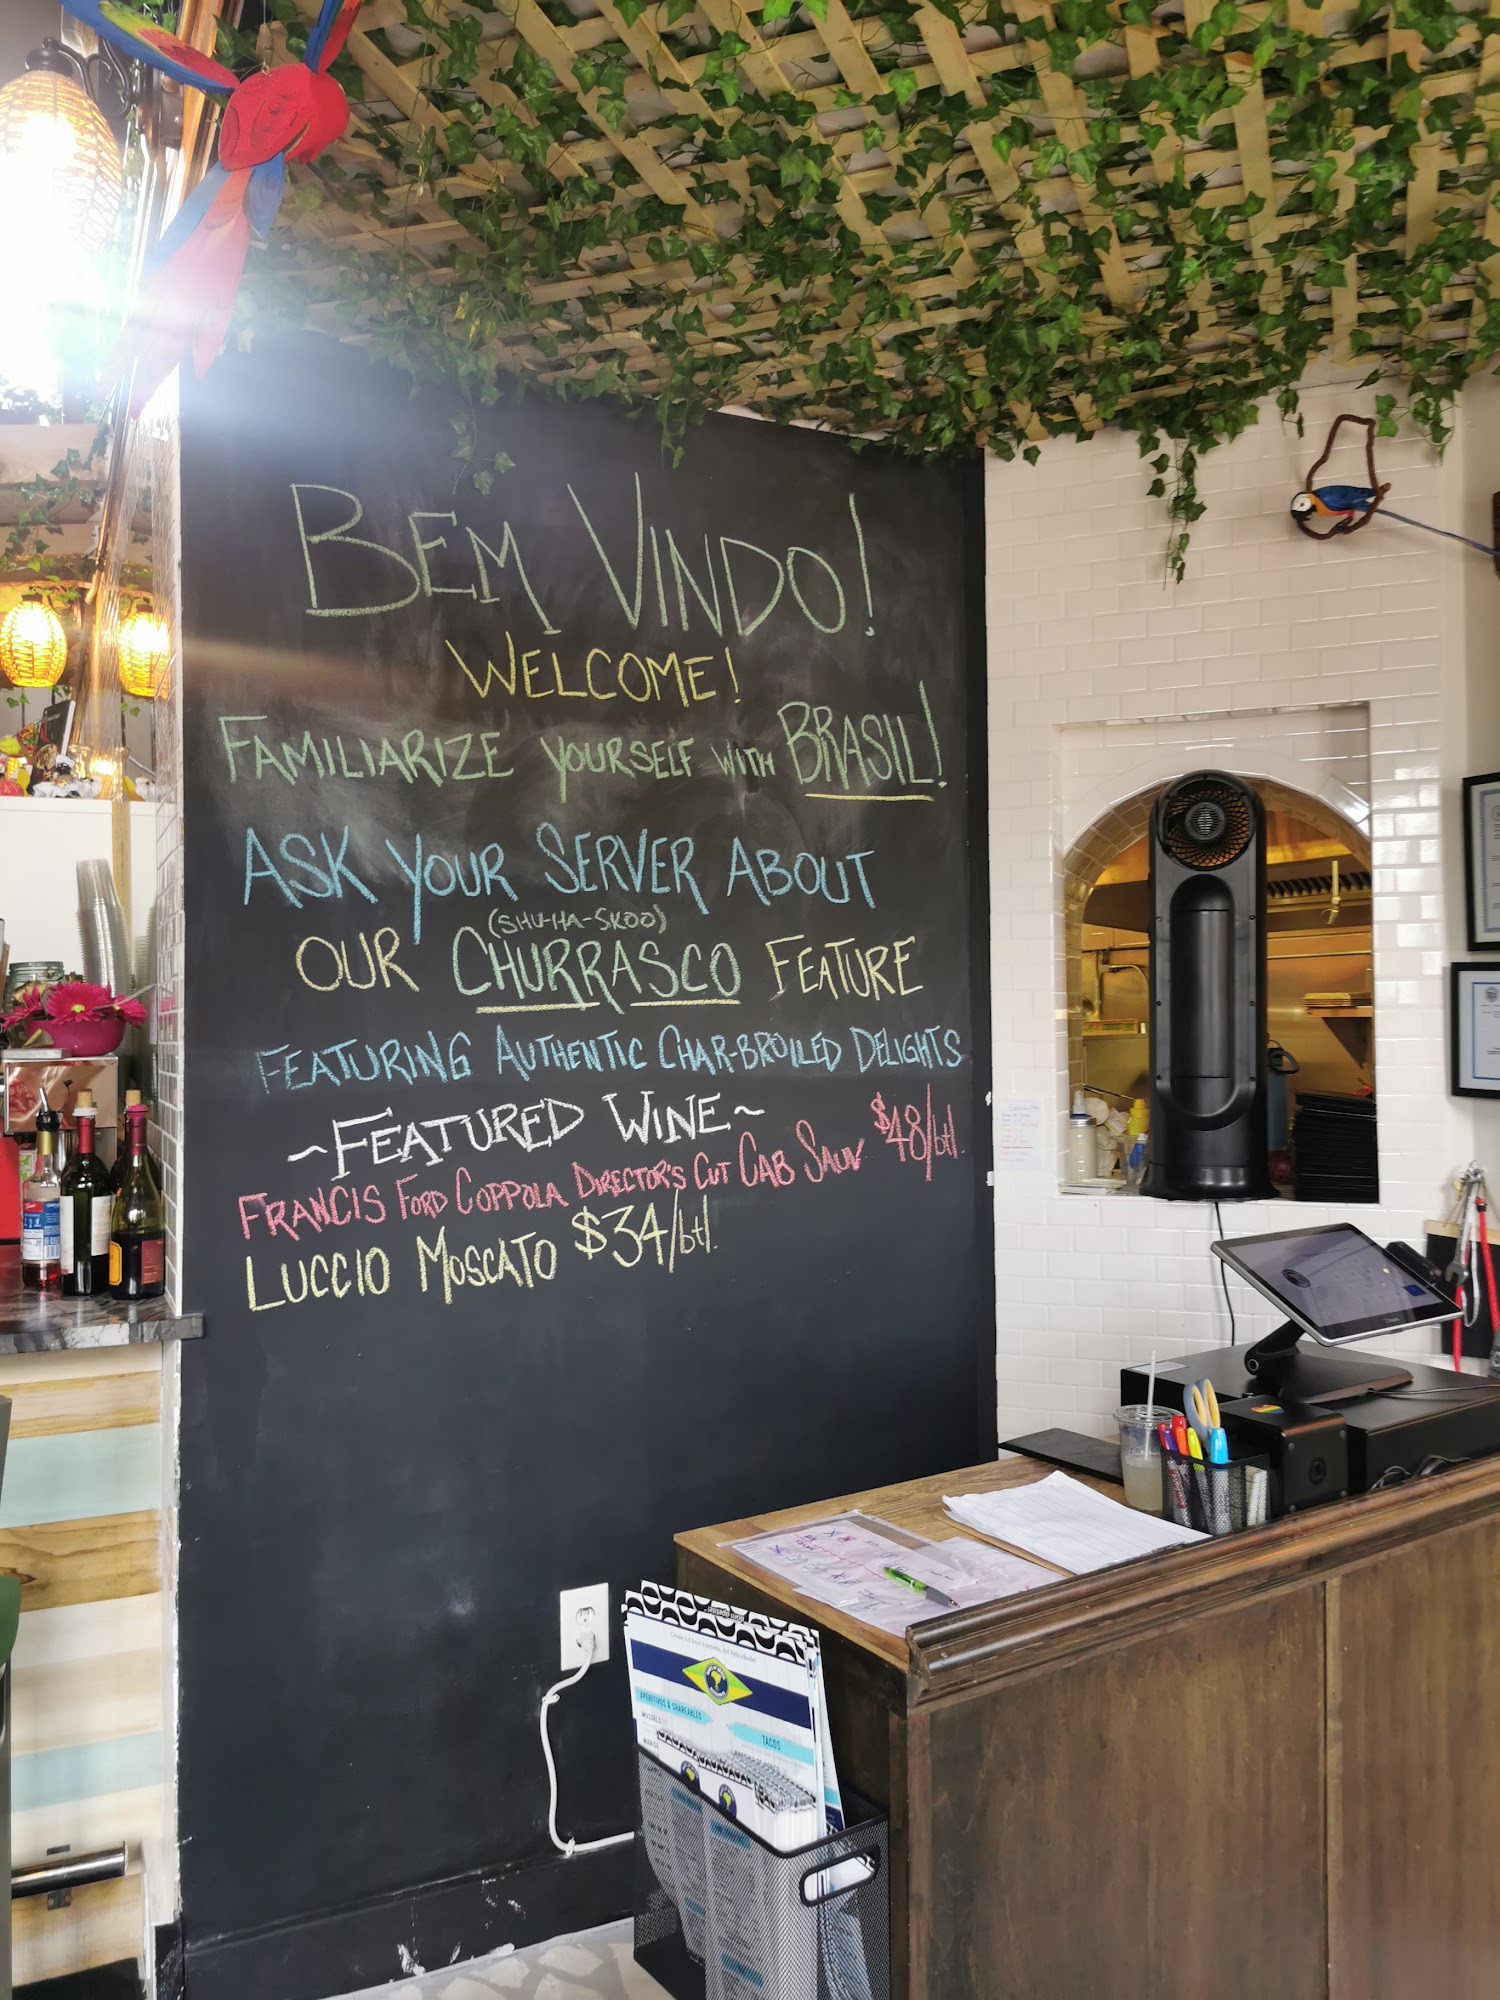 BEM VINDO!
WELCOME!
FAMILIARIZE YOURSELF WITH BRASIL!
ASK YOUR SERVER ABOUT
(SHU-HA-SKOO)
OUR CHURRASCO FEATURE
FEATURING AUTHENTIC CHAR-BROILED DELIGHTS
~FEATURED WINE~
FRANCIS FORD COPPOLA DIRECTOR'S CUT CAB SAUV $48/btl.
LUCCIO MOSCATO $34/btl.
APERITIVOS & SHAREABLES
MUSSELS
TACOS